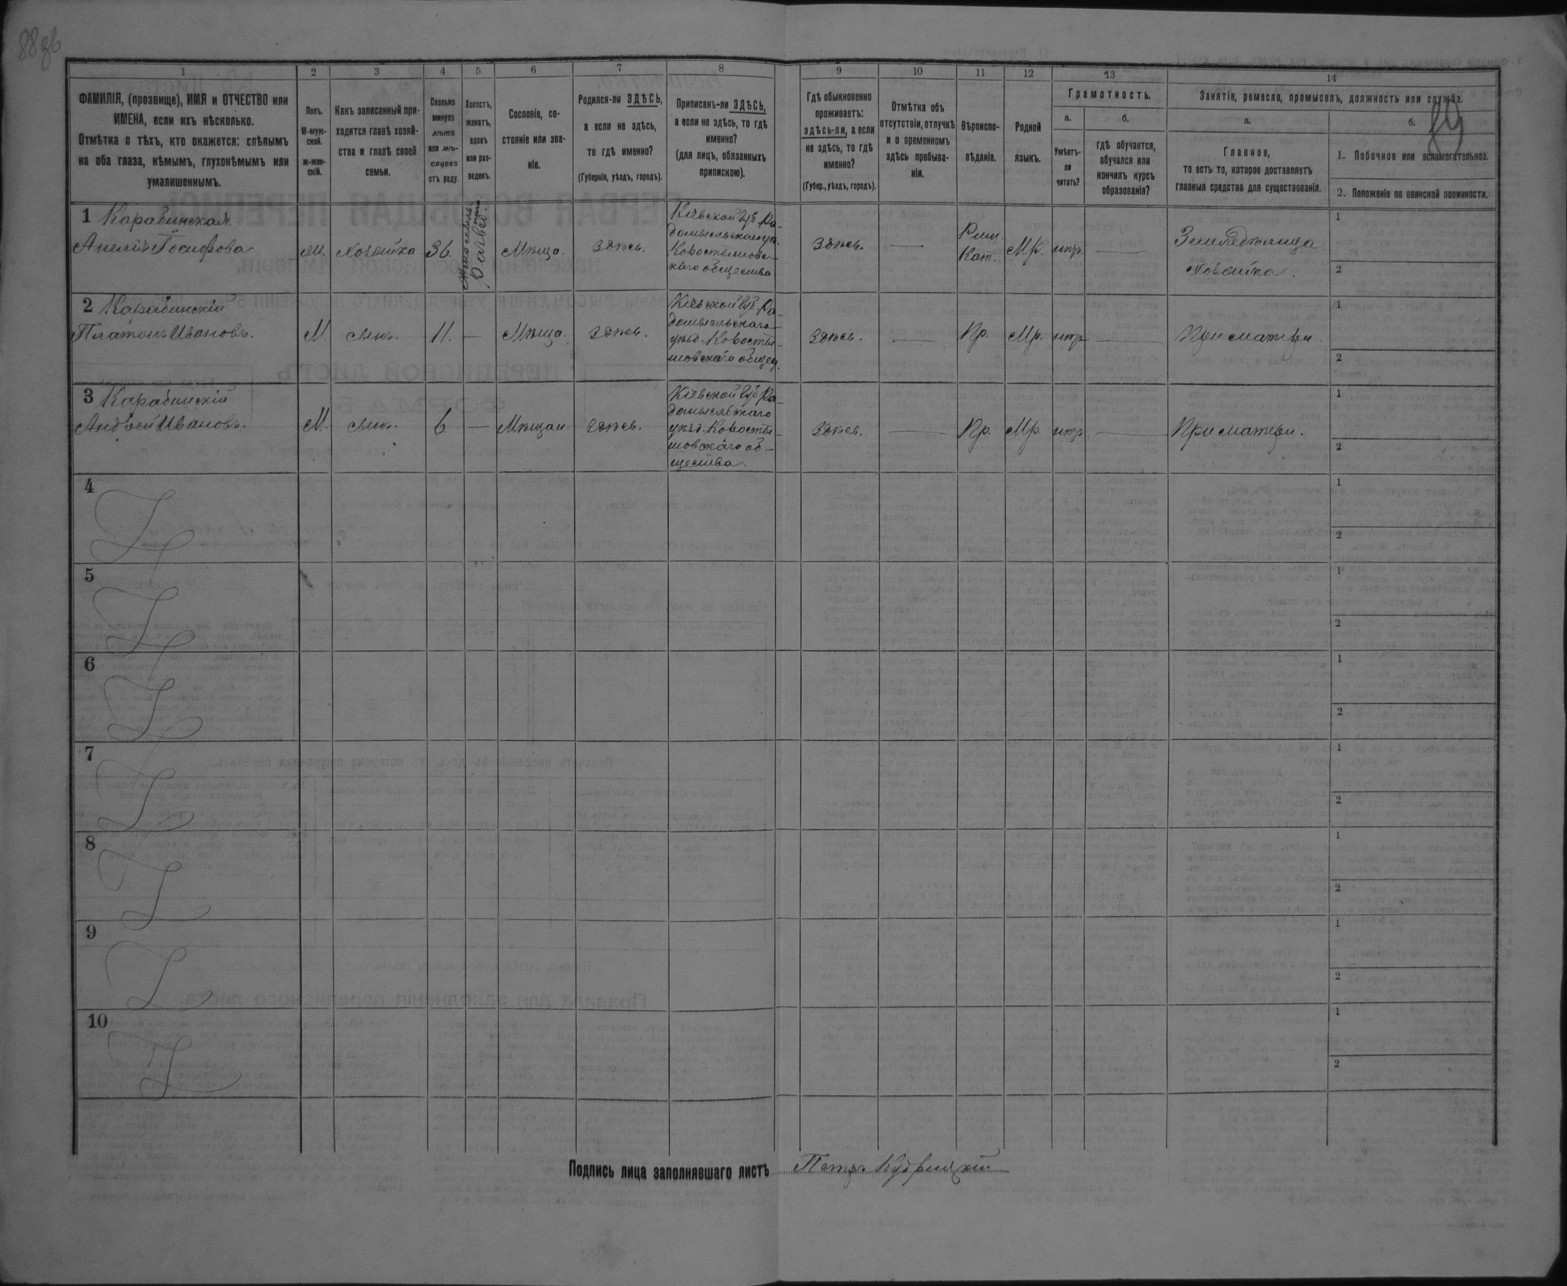 88об
89
1
2
3
4
5
6
7
8
9
10
11
12
13
14
ФАМИЛІЯ, (прозвище), ИМЯ и ОТЧЕСТВО или
ИМЕНА, если ихъ нѣсколько.
Отмѣтка о тѣхъ, кто окажется: слѣпымъ
на оба глаза, нѣмымъ, глухонѣмымъ или
умалишеннымъ.
Полъ.
М-муж-
ской.
Ж-жен-
скій.
Какъ записанный при-
ходится главѣ хозяй-
ства и главѣ своей
семьи.
Сколько
минуло
лѣтъ
или мѣ-
сяцевъ
отъ роду.
Холостъ,
женатъ,
вдовъ
или раз-
веденъ.
Сословіе, со-
стояніе или зва-
ніе.
Родился-ли ЗДѢСЬ,
а если не здѣсь,
то гдѣ именно?
(Губернія, уѣздъ, городъ).
Приписанъ-ли ЗДѢСЬ,
а если не здѣсь, то гдѣ
именно?
(для лицъ, обязанныхъ
припискою).
Гдѣ обыкновенно
проживаетъ:
здѣсь-ли, а если
не здѣсь, то гдѣ
именно?
(Губер., уѣздъ, городъ).
Отмѣтка объ
отсутствіи, отлучкѣ
и о временномъ
здѣсь пребыва-
ніи.
Вѣроиспо-
вѣданіе.
Родной
языкъ.
Грамотность.
а.
Умѣетъ-
ли
читать?
б.
гдѣ обучается,
обучался или
кончилъ курсъ
образованія?
Занятіе, ремесло, промыселъ, должность или служба.
а.
Главное,
то есть то, которое доставляетъ
главныя средства для существованія.
б.
1. Побочное или вспомогательное.
2. Положеніе по воинской повинности.
1 Карабинская
Анелія Іосифова
хозяйка
36.
Мѣща.
здѣсь.
Кіевской губ. Ра-
домысльскаго у.
Коростышевс-
каго общества
здѣсь.
—
Рим.
Кат.
М.р.
нѣт.
—
Земледѣлица
хозяйка.
1
2
2 Карабинскій
Платонъ Ивановъ.
М.
сынъ.
11.
—
Мѣща.
здѣсь.
Кіевской губ. Ра-
домысльскаго
уѣз. Коросты-
шовскаго общес.
здѣсь.
—
Пр.
М.р.
нѣт
—
При матери.
1
2
3 Карабинскій
Андрей Ивановъ.
М.
сынъ.
6
—
Мѣщан.
здѣсь.
Кіевской губ. Ра-
домысльскаго
уѣз. Коросты-
шовскаго об-
щества.
здѣсь.
—
Пр.
М.р.
нѣт
—
При матери.
1
2
4
1
2
5
1
2
6
1
2
7
1
2
8
1
2
9
1
2
10
1
2
Подпись лица заполнявшаго листъ Петръ Кудрицкій